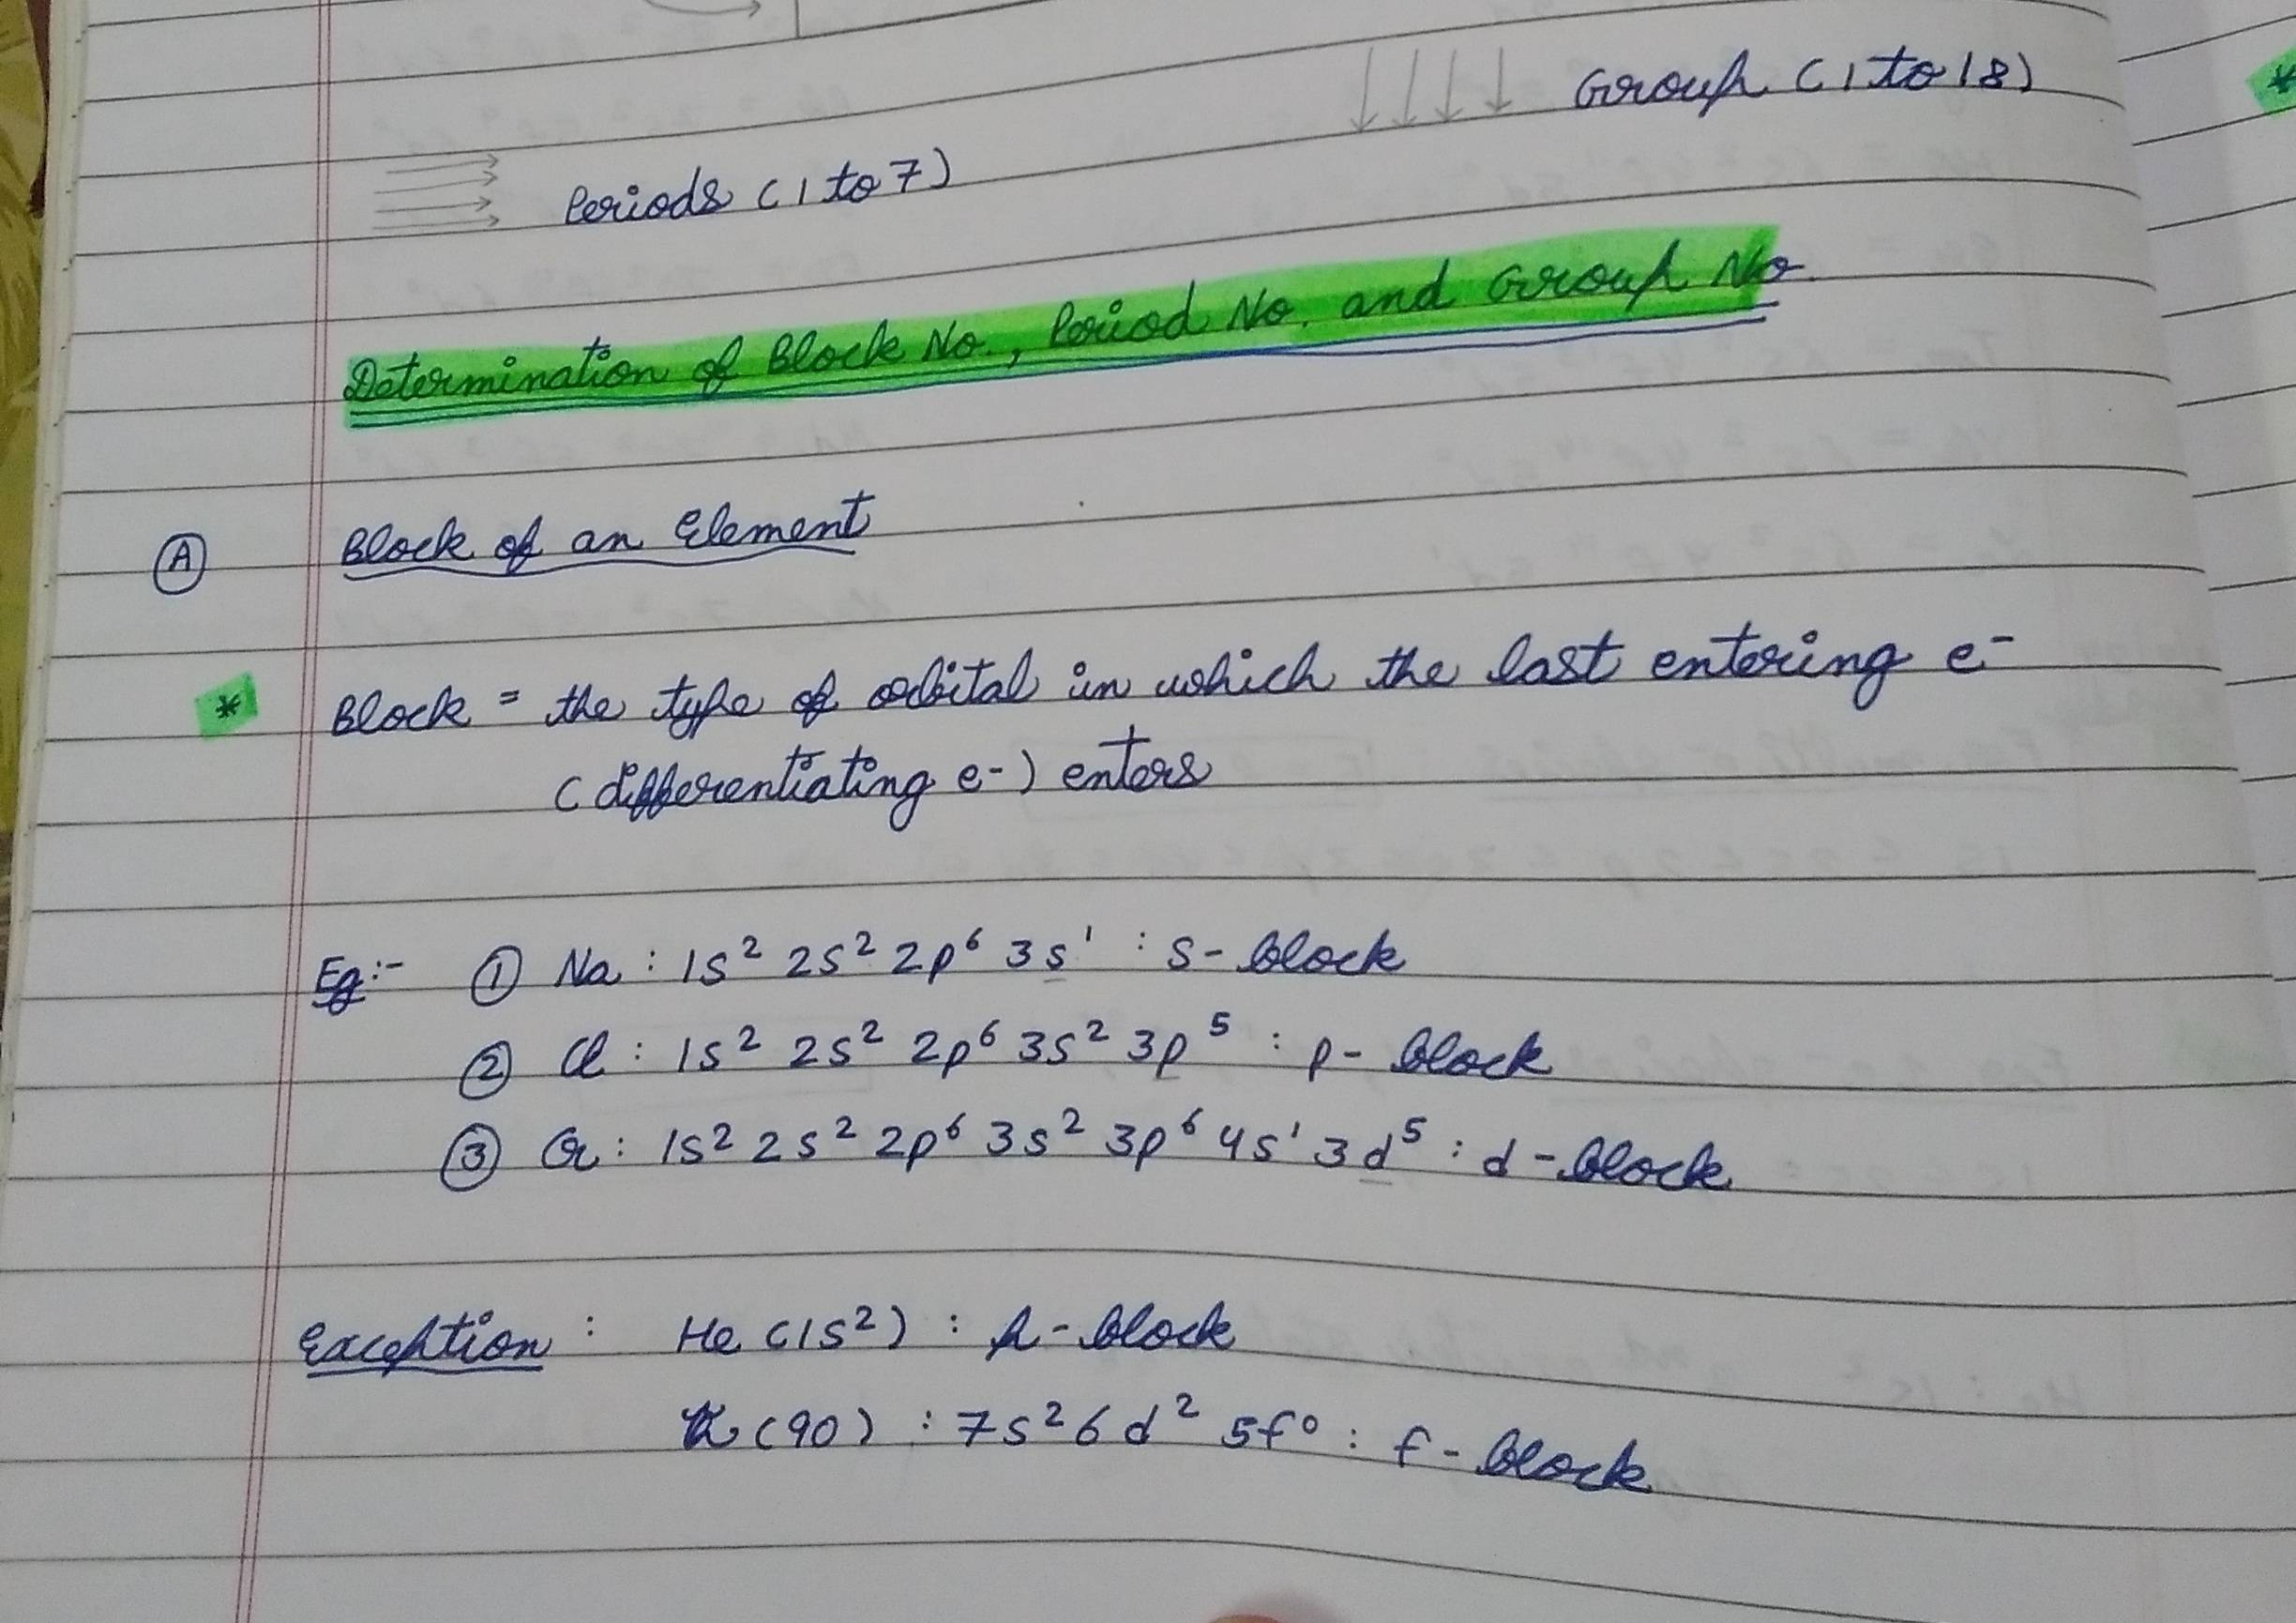 Group (1 to 18)
Periods (1 to 7)
Determination of Block No., Period No. and Group No.
Ⓐ Block of an Element
* Block = the type of orbital in which the last entering e⁻
(differentiating e-) enters
Eg:- ① Na : 1s² 2s² 2p⁶ 3s¹ : s-block
② Cl : 1s² 2s² 2p⁶ 3s² 3p⁵ : p-block
③ Cr : 1s² 2s² 2p⁶ 3s² 3p⁶ 4s¹ 3d⁵ : d-block
Exception : He (1s²) : p-block
Th (90) : 7s² 6d² 5f⁰ : f-block
*